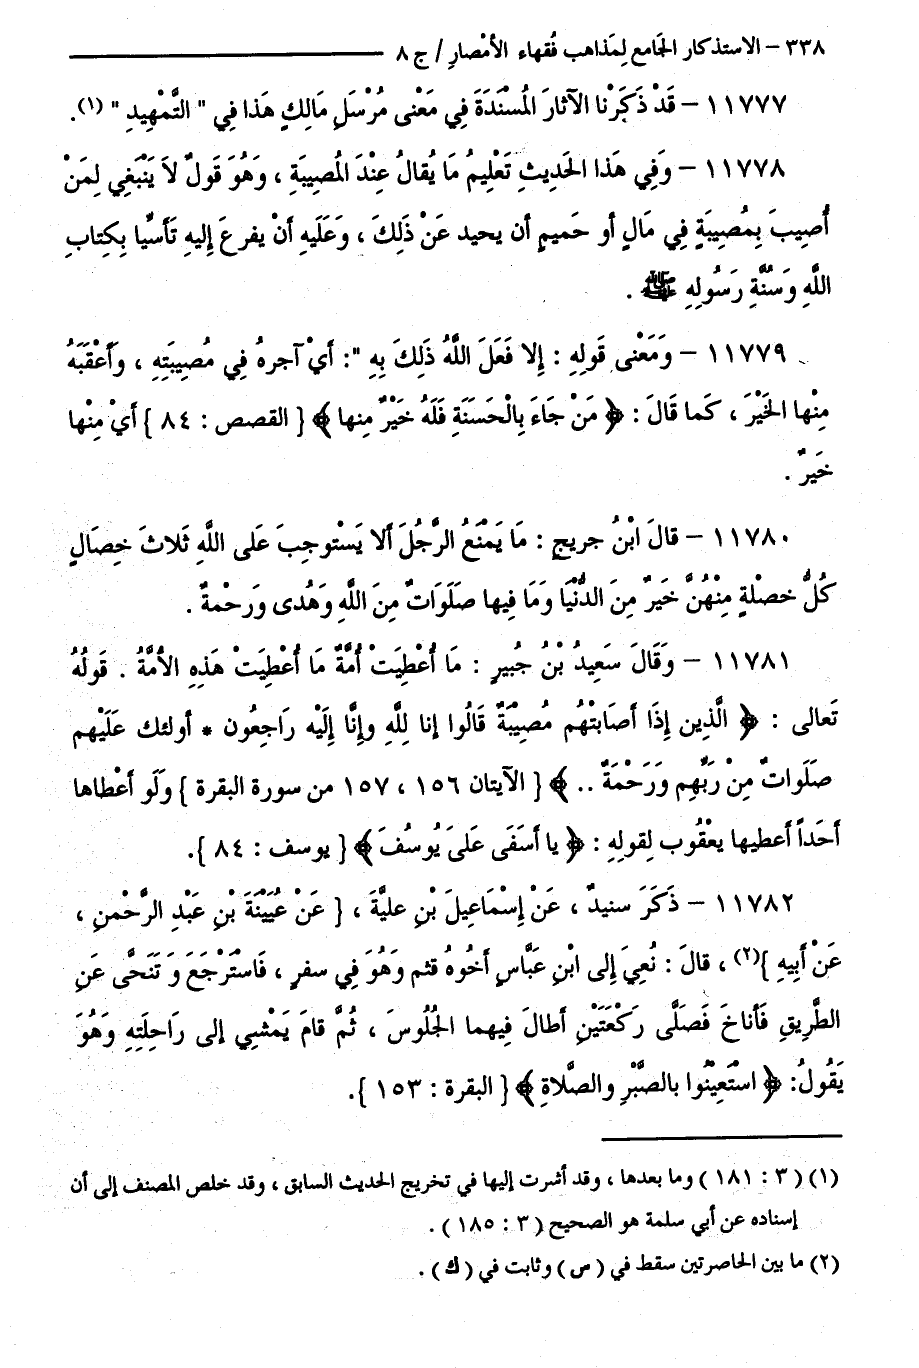 ٣٣٨ – الاستذكار الجَامع لِمَذاهب فُقهاء الأمْصارِ / ج ٨
١١٧٧٧ – قَدْ ذَكَرْنا الآثارَ المُسْنَدَةَ فِي مَعْنى مُرْسَلِ مَالِكٍ هَذا فِي " التَّمْهِيدِ " (١).
١١٧٧٨ – وَفِي هَذا الحَديثِ تَعْلِيمُ مَا يُقالُ عِنْدَ المُصيبَةِ ، وَهُوَ قَولٌ لاَ يَنْبَغِي لِمَنْ
أُصِيبَ بِمُصِيبَةٍ فِي مَالٍ أو حَميمٍ أن يحيد عَنْ ذَلِكَ ، وَعَلَيهِ أنْ يفرعَ إليهِ تَأسِّيا بِكِتابِ
اللَّهِ وَسُنَّةِ رَسُولِهِ ﷺ .
١١٧٧٩ – وَمَعْنى قَولِهِ : إِلا فَعَلَ اللَّهُ ذَلِكَ بِهِ ": أيْ آجرهُ فِي مُصِيبَتِهِ ، وَأعْقَبَهُ
مِنْها الخَيْرَ ، كَما قَالَ : ﴿ مَنْ جَاءَ بِالْحَسَنَةِ فَلَهُ خَيْرٌ مِنها ﴾ { القصص : ٨٤ } أيْ مِنْها
خَيرٌ .
١١٧٨٠ – قالَ ابْنُ جريجٍ : مَا يَمْنَعُ الرَّجُلَ ألا يَسْتوجِبَ عَلى اللَّهِ ثَلاثَ خِصَالٍ
كُلُّ خصْلةٍ مِنْهُنَّ خَيرٌ مِنَ الدُّنْيَا وَمَا فِيها صَلَوَاتٌ مِنَ اللَّهِ وَهُدى وَرَحْمةٌ .
١١٧٨١ – وَقَالَ سَعِيدُ بْنُ جُبيرٍ : مَا أُعْطِيَتْ أُمَّةٌ مَا أُعْطِيَتْ هَذِهِ الأُمَّةُ . قَولُهُ
تَعالى : ﴿ الَّذِين إِذَا أصَابتْهُم مُصِيْبَةٌ قَالُوا إنا لِلَّهِ وإِنَّا إِلَيْه رَاجِعُون * أولئك عَلَيْهِم
صَلَواتٌ مِنْ رَبِّهِم وَرَحْمَةٌ .. ﴾ { الآيتان ١٥٦ ، ١٥٧ من سورة البقرة } وَلَو أعْطاها
أحَداً أعطيها يعْقُوب لِقولِهِ : ﴿ يا أسَفَى عَلىَ يُوسُفَ ﴾ { يوسف : ٨٤ }.
١١٧٨٢ – ذَكَرَ سنيدٌ ، عَنْ إسْمَاعِيلَ بْنِ عليَّةَ ، { عَنْ عُيَيْنَةَ بْنِ عَبْدِ الرَّحْمنِ ،
عَنْ أبِيهِ }(٢) ، قالَ : نُعِيَ إلى ابْنِ عَبَّاسٍ أخُوهُ قثم وَهُوَ فِي سفرٍ ، فَاسْتَرْجَعَ وَ تَنَحَّى عَنِ
الطَّرِيقِ فَأناخَ فَصَلَّى رَكْعَتَيْنِ أطَالَ فِيهما الجُلُوسَ ، ثُمَّ قامَ يَمْشِي إلى رَاحِلَتِهِ وَهُوَ
يَقُولُ: ﴿ اسْتَعِيْنُوا بالصَّبْرِ والصَّلاةِ ﴾ { البقرة : ١٥٣ }.
(١) ( ٣ : ١٨١ ) وما بعدها ، وقد أشرت إليها في تخريج الحديث السابق ، وقد خلص المصنف إلى أن
إسناده عن أبي سلمة هو الصحيح ( ٣ : ١٨٥ ) .
(٢) ما بين الحاصرتين سقط في ( س ) وثابت في ( ك ) .